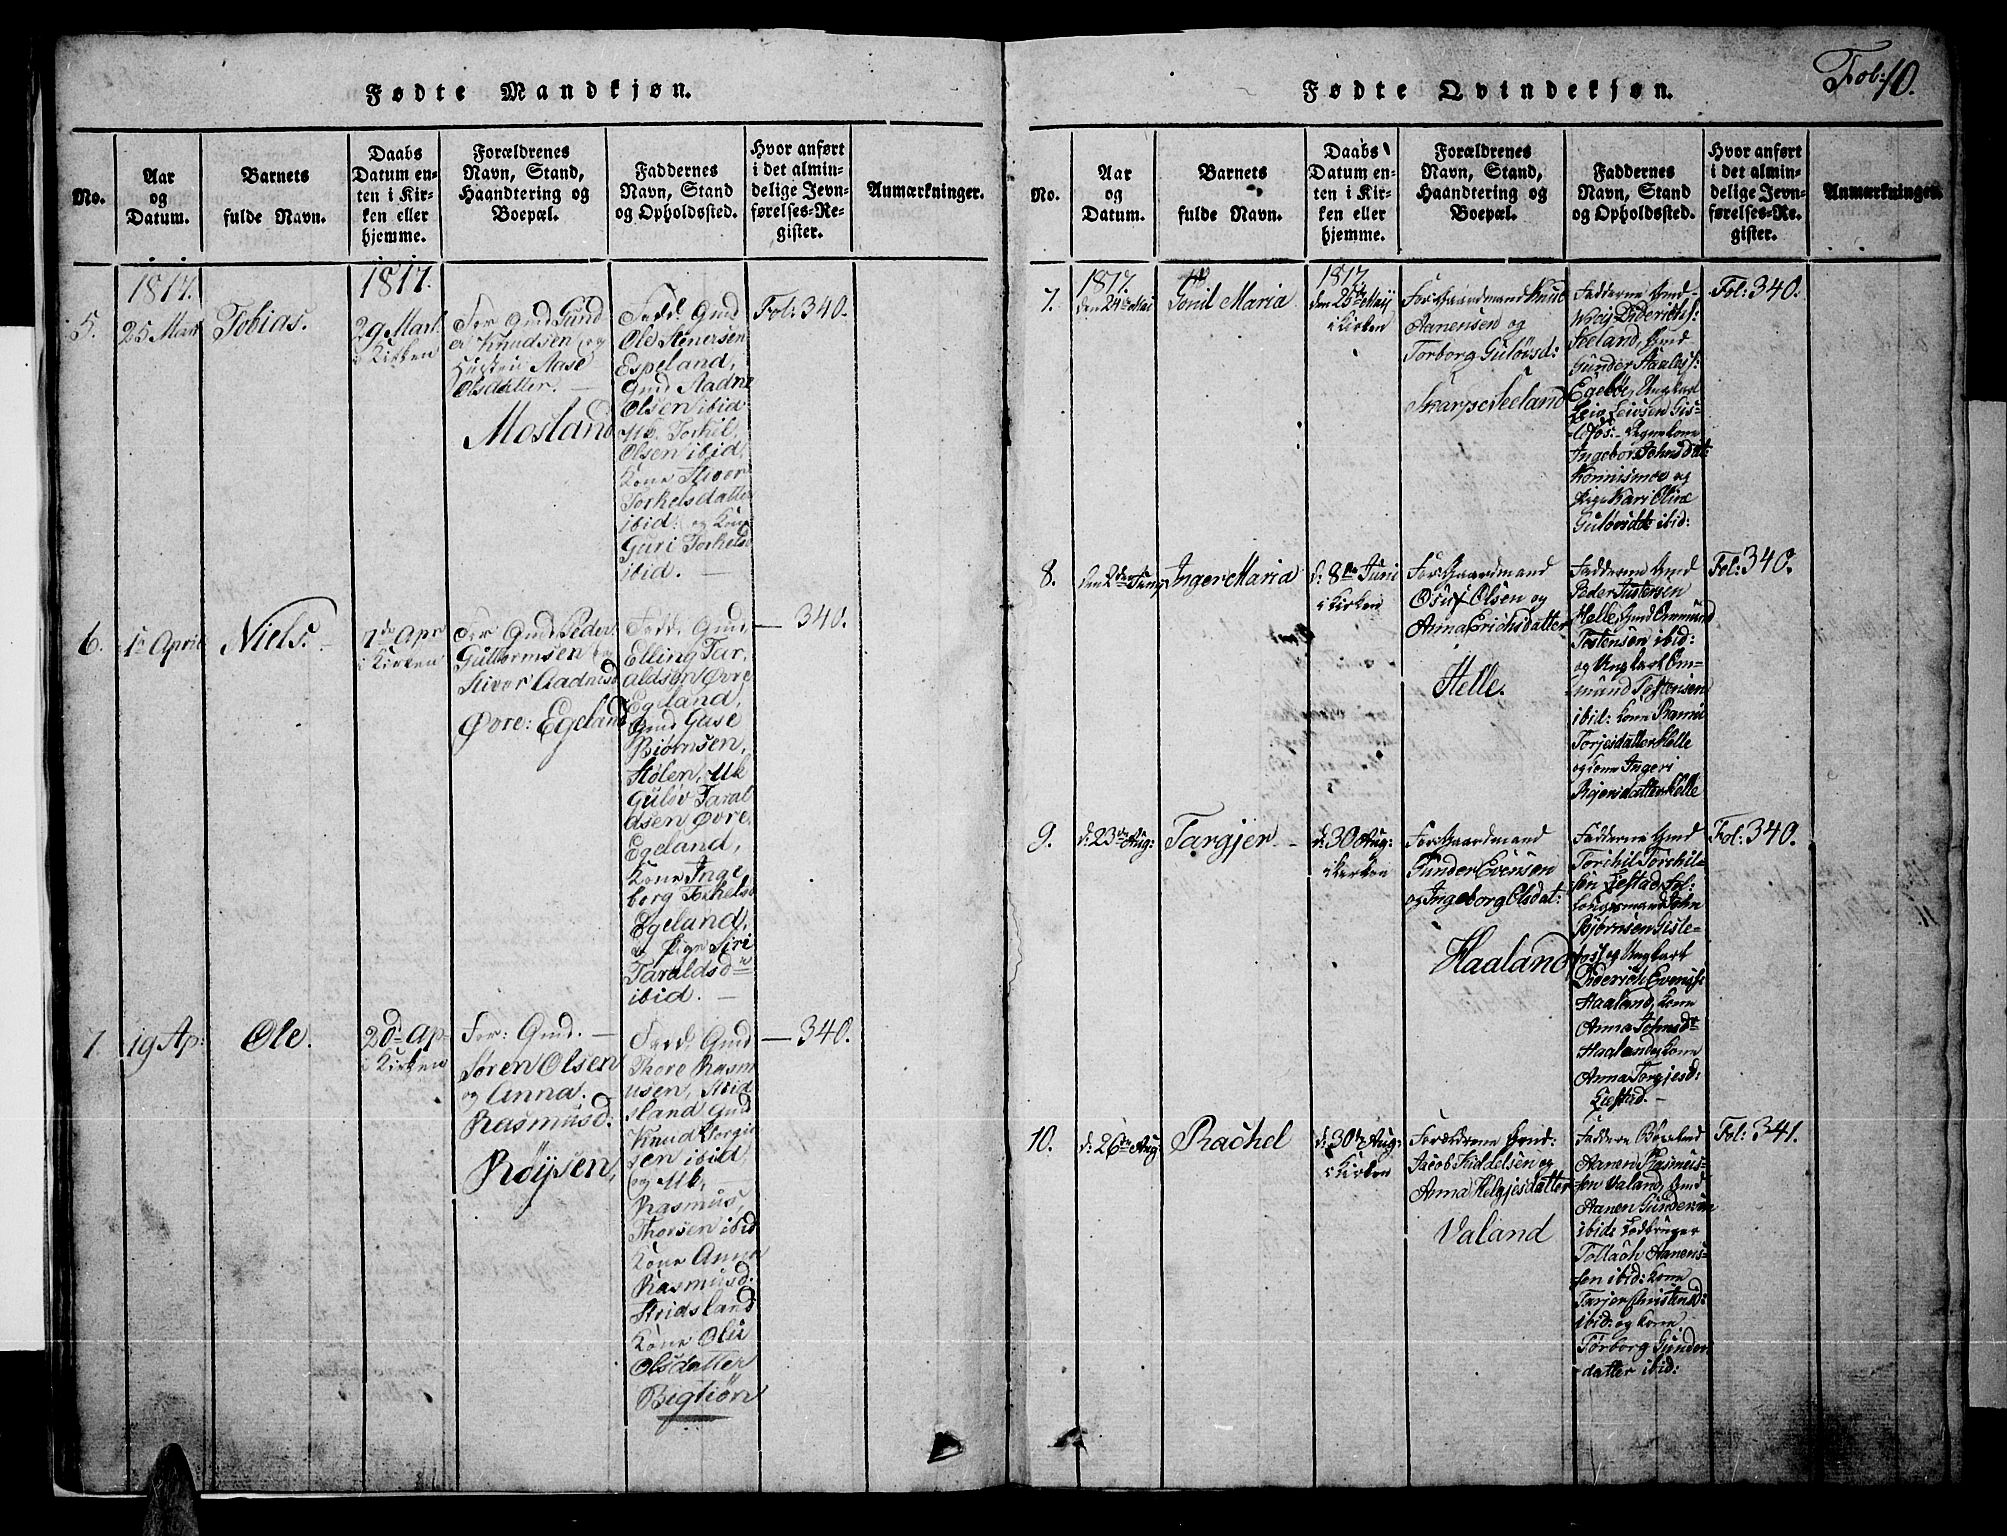 Fødte Mandkjøn.
No.
Aar
og
Datum.
Barnets
fulde Navn.
Daabs
Datum en-
ten i Kir-
ken eller
hjemme.
Forældrenes
Navn, Stand,
Haandtering og
Boepæl.
Faddernes
Navn, Stand
og Opholdssted.
Hvor anført
i det almin-
delige Jevn-
førelses-Re-
gister.
Anmærkninger.
5.
1817.
25 Mart
Tobias.
1817.
29 Mart
i Kirken
For Gmd Gund
er Knudsen og
Hustru Aase
Olsdatter. —
Mosland
Fadd. Gmd
Ole Stenersen
Espeland,
Gmd Aadne
Olsen ibid
Mk. Torkil
Olsen ibid,
Kone Sivor
Torkelsdatter
ibid: og Kone
Guri Torkelsd
ibid. —
Fol: 340.
6.
1ste April
Niels.
7de Apr
i Kirken
For Gmd Peder
Guttormsen og
Sivor Aadnesd
Øvre: Egeland
Fadd. Gmd
Elling Tar,
aldsen Øvre
Egeland,
Gmd Gase
Biørnsen,
Stølen, Mk
Guløv Taral
dsen Øvre
Egeland,
Kone Inge
borg Torkelsd
Egeland,
Siri
Taraldsdr
ibid. —
— 340.
7.
19 Ap:
Ole.
20de Ap
i Kirken
For: Gmd. —
Søren Olsen
og Anna
Rasmusd:
Røysen,
Fadd. Gmd
Thore Rasm
usen, Strid
sland Gmd
Knud Torgie
sen ibid
og Mk.
Rasmus
Thorsen ibid
Kone Anna
Rasmusd.
Stridsland
Kone Oli
Olsdatter
Begtiøn
— 340.
Fol: 10.
Fødte Qvindekjøn.
No.
Aar
og
Datum.
Barnets
fulde Navn.
Daabs
Datum en-
ten i Kir-
ken eller
hjemme.
Forældrenes
Navn, Stand,
Haandtering og
Boepæl.
Faddernes
Navn, Stand
og Opholdssted.
Hvor anført
i det almin-
delige Jevn-
førelses-Re-
gister.
Anmærkninger.
7.
1817.
den 24de Mai
Gonil Maria
1817.
den 25de Maij
i Kirken
For: Gaardmand Knud
Aanensen og
Torborg Guløvsd:
Skarpeseeland
Fadderne Gmd
Diderichs:
Seeland, Gmd
Gunder Aaless:
Egebøe, Ungkarl
Leiv Leivsen Gis-
lefos. Pigekone
Ingebor Johnsdat:
Konnismoe og
Pige Kari Oline
Guløvsdt ibid:
Fol: 340.
8.
den 2den Juny
Inger Maria
d: 8de Juni
i Kirken
For: Gaardmand
Osuf Olsen og
Anna Erichsdatter
Helle.
Fadderne Gmd
Peder Tostensen
Helle, Gmd Ommund
Tostensen ibid:
og Ungkarl Om-
mund Tostensen
ibid: Kone Ramel
Torjesdatter Helle
og Kone Ingeri
Bgiensdatter Helle
Fol: 340.
9.
d: 23de Aug:
Targjer —
d: 30 Aug:
i Kirken
For: Gaardmand
Gunder Evensen
og Ingeborg Olsdat:
Haaland
Fadderne Gmd
Torchil Torchil-
sen Lefstad, Fol:
Lougsmand John
Bjørnsen Gisle-
fos, og Ungkarl
Diderich Evens:
Haaland, Kone
Anna Johnsdr
Haaland, Kone
Anna Torgjesd:
Lefstad. —
Fol: 340.
10.
d: 26de Aug
Rachel
d: 30de Aug:
i Kirken
Forældrene Gmd:
Jacob Kiddelsen og
Anna Helgjesdatter
Valand
Faddere
Aanen Rasmus-
sen Valand, Gmd
Aanen Gundersen
ibid: Lodbruger
Tollach Aanens-
sen ibid: Kone
Tarjer Christensd:
ibid: og Kone
Torborg Gunder
datter ibid:
Fol: 341.